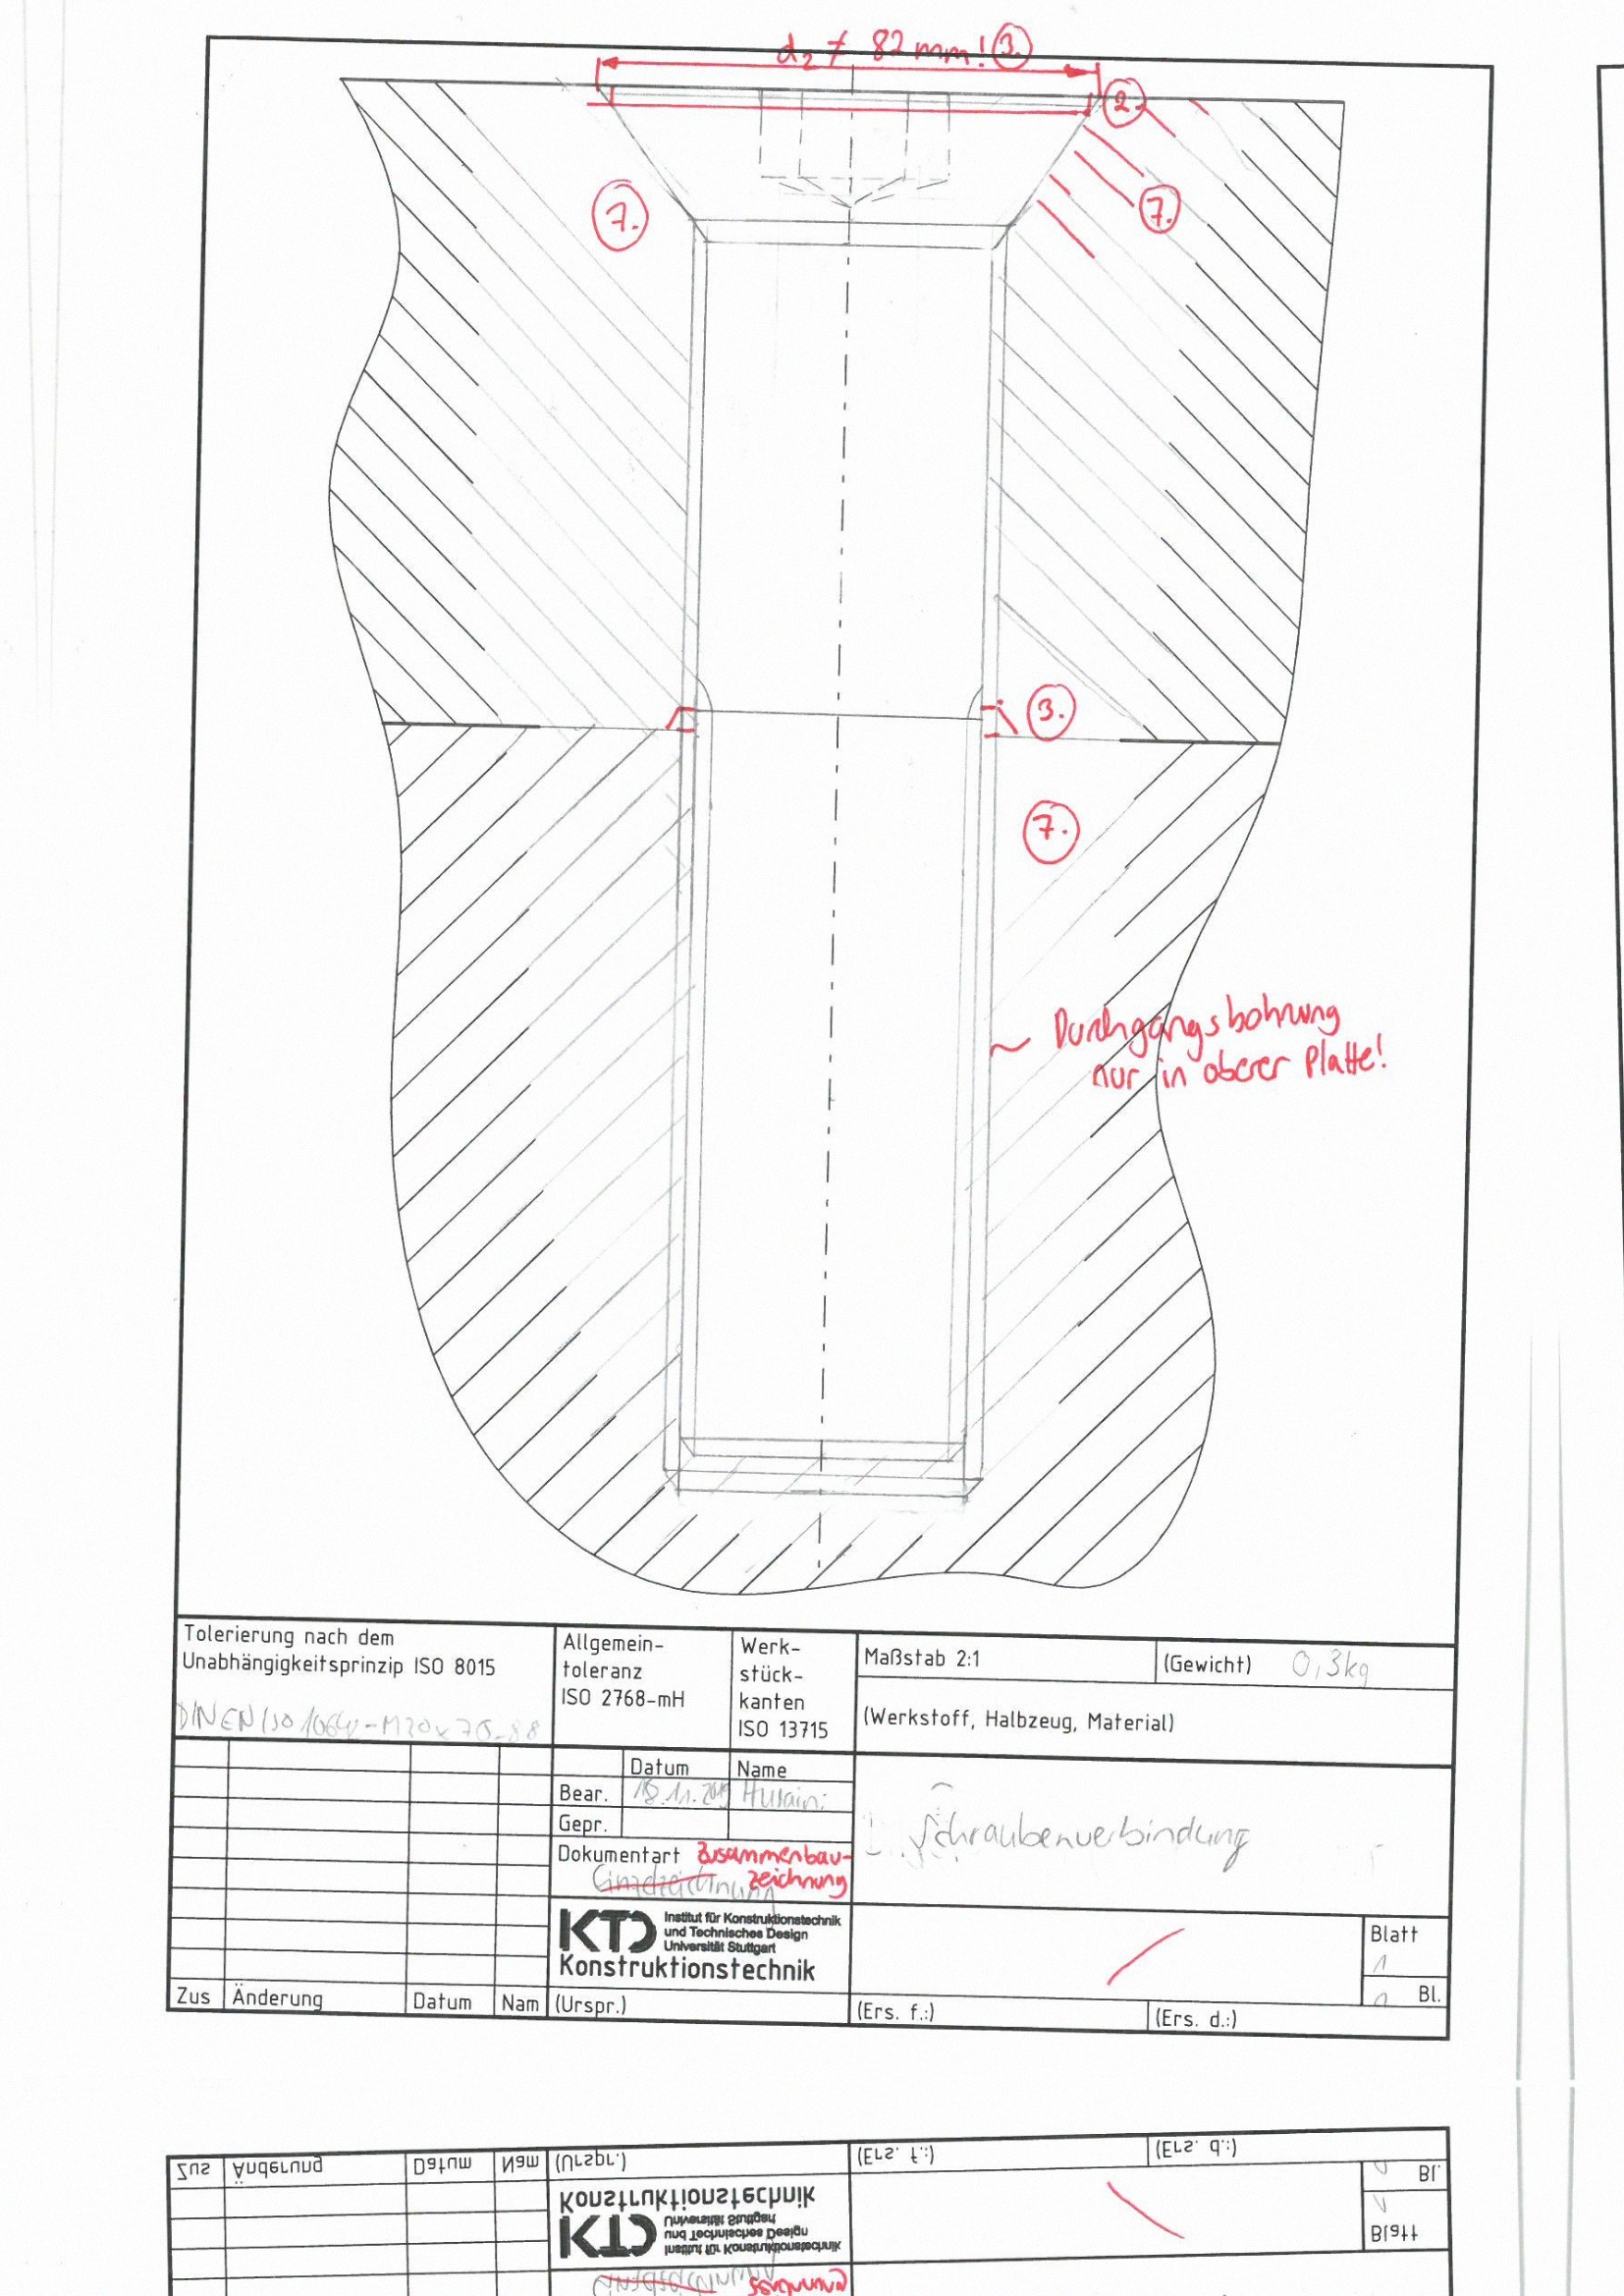 d₂ ≠ 82 mm! 3.
2.
7.
7.
3.
7.
Durchgangsbohrung
nur in oberer Platte!
Tolerierung nach dem
Unabhängigkeitsprinzip ISO 8015
Allgemein-
toleranz
ISO 2768-mH
Werk-
stück-
kanten
ISO 13715
Maßstab 2:1
(Gewicht) 0,3kg
(Werkstoff, Halbzeug, Material)
DIN EN ISO
Datum
Name
Bear.
Gepr.
Dokumentart Zusammenbau-
zeichnung
Einzelzeichnung
Schraubenverbindung
KTD
Institut für Konstruktionstechnik
und Technisches Design
Universität Stuttgart
Konstruktionstechnik
Blatt
1
1 Bl.
Zus Änderung Datum Nam (Urspr.) (Ers. f.:) (Ers. d.:)
Zus Änderung Datum Nam (Urspr.) (Ers. f.:) (Ers. d.:)
1 Bl.
1
Blatt
Konstruktionstechnik
KTD
Universität Stuttgart
und Technisches Design
Institut für Konstruktionstechnik
zeichnung